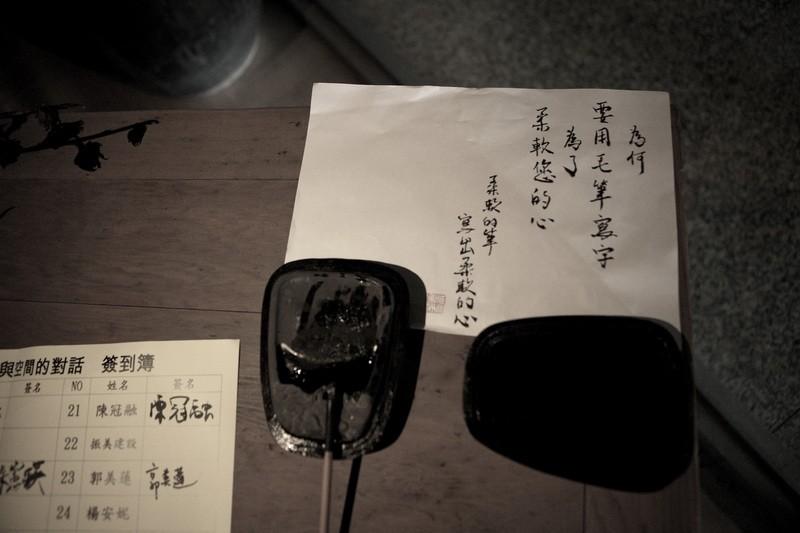 為何
要用毛筆寫字
為了
柔軟您的心
柔軟的筆
寫出柔軟的心
與空間的對話 簽到簿
簽名 NO 姓名 簽名
21 陳冠融 陳冠融
22 振美建設
23 郭美蓮 郭美蓮
24 楊安妮